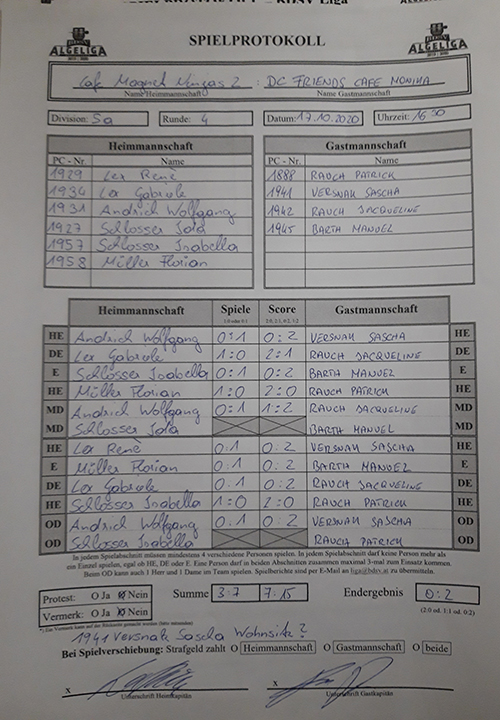 Liga
ALGELIGA
SPIELPROTOKOLL
ALGELIGA
2 : DC FRIENDS CAFE MONIKA
Name Heimmannschaft Name Gastmannschaft
Division: 5a Runde: 4 Datum: 17.10.2020 Uhrzeit: 16 30
Heimmannschaft Gastmannschaft
PC - Nr. Name PC - Nr. Name
1929 Lex Renè 1888 RAUCH PATRICK
1934 Lex Gabriele 1941 VERSNAK SASCHA
1931 Andrich Wolfgang 1942 RAUCH JACQUELINE
1927 Schlosser 1945 BARTH MANUEL
1957 Schlosser Isabella
1958 Müller Florian
Heimmannschaft Spiele Score Gastmannschaft
1:0 oder 0:1 2:0, 2:1, 0:2, 1:2
HE Andrich Wolfgang 0:1 0:2 VERSNAK SASCHA HE
DE Lex Gabriele 1:0 2:1 RAUCH JACQUELINE DE
E Schlosser Isabella 0:1 0:2 BARTH MANUEL E
HE Müller Florian 1:0 2:0 RAUCH PATRICK HE
MD Andrich Wolfgang 0:1 1:2 RAUCH JACQUELINE MD
MD Schlosser BARTH MANUEL MD
HE Lex Renè 0:1 0:2 VERSNAK SASCHA HE
E Müller Florian 0:1 0:2 BARTH MANUEL E
DE Lex Gabriele 0:1 0:2 RAUCH JACQUELINE DE
HE Schlosser Isabella 1:0 2:0 RAUCH PATRICK HE
OD Andrich Wolfgang 0:1 0:2 VERSNAK SASCHA OD
OD Schlosser Isabella RAUCH PATRICK OD
In jedem Spielabschnitt müssen mindestens 4 verschiedene Personen spielen. In jedem Spielabschnitt darf keine Person mehr als
ein Einzel spielen, egal ob HE, DE oder E. Eine Person darf in beiden Abschnitten zusammen maximal 3-mal zum Einsatz kommen.
Beim OD kann auch 1 Herr und 1 Dame im Team spielen. Spielberichte sind per E-Mail an liga@bdsv.at zu übermitteln.
Protest: O Ja O Nein Summe 3:7 7:15 Endergebnis 0:2
Vermerk: O Ja O Nein (2:0 od. 1:1 od. 0:2)
1941 Versnak Sascha Wohnsitz?
Bei Spielverschiebung: Strafgeld zahlt O Heimmannschaft O Gastmannschaft O beide
x x
Unterschrift Heimkapitän Unterschrift Gastkapitän